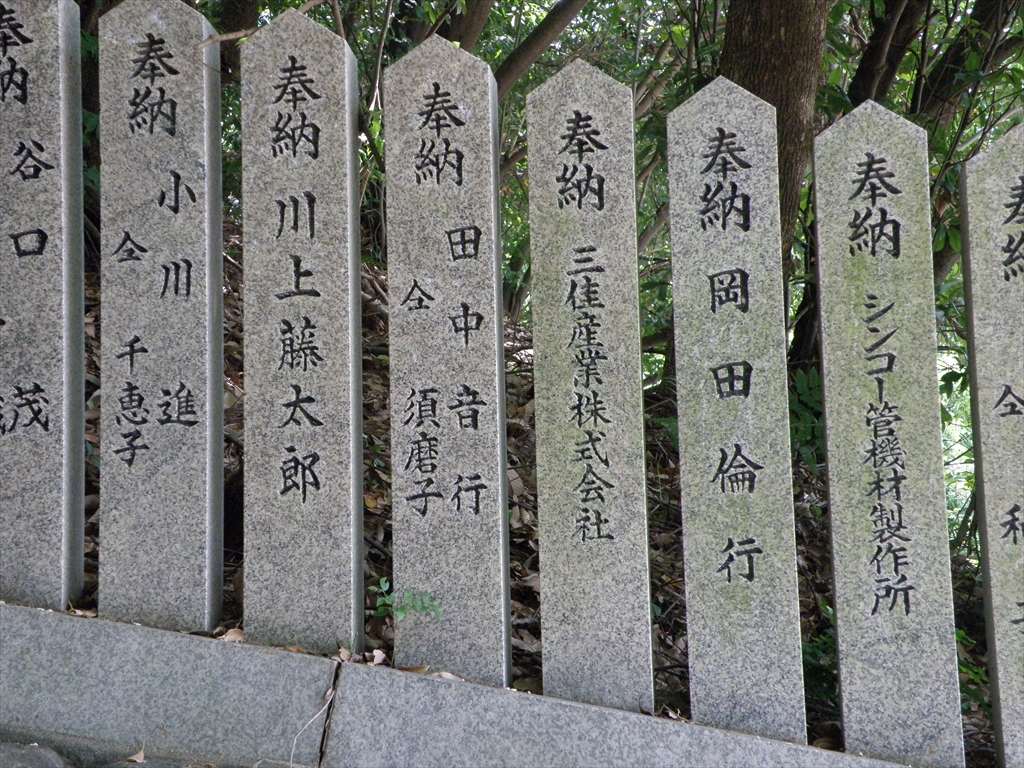 奉納
仝
奉納 シンコー管機材製作所
奉納 岡田倫行
奉納 三佳産業株式会社
奉納 田中音行
仝 須磨子
奉納 川上藤太郎
奉納 小川進
仝 千恵子
奉納 谷口 茂